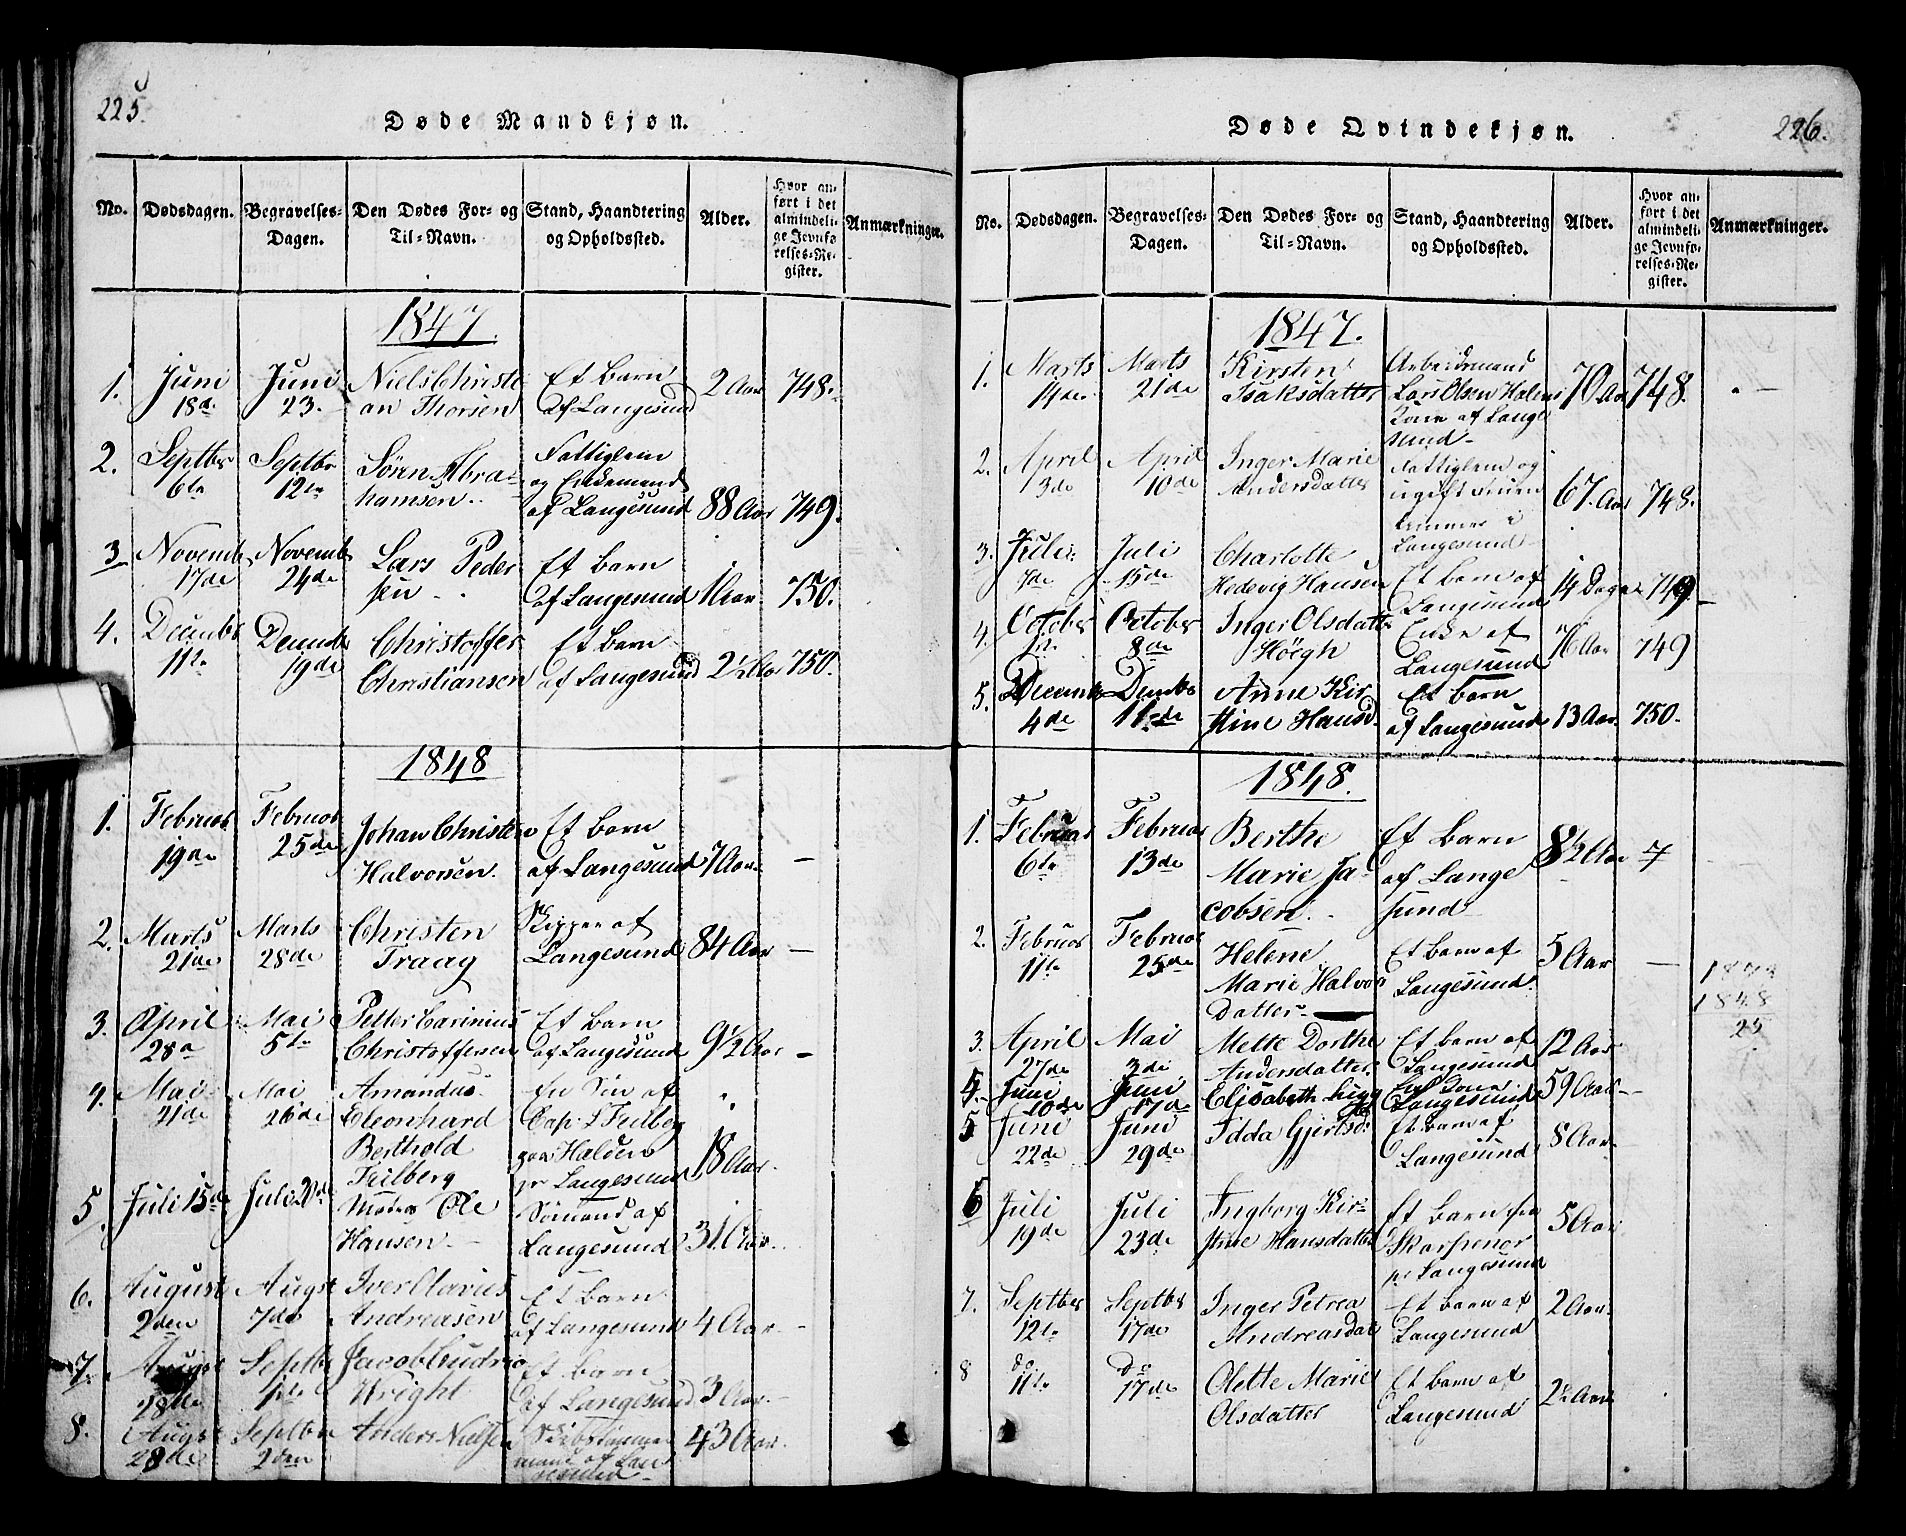 225.
Døde Mandkjøn.
No. Dødsdagen. Begravelses-Dagen. Den Dødes For- og Til-Navn. Stand, Haandtering og Opholdssted. Alder. Hvor anført i det almindelige Jevnførelses-Register. Anmærkninger.
1847.
1. Juni Juni Niels Christi Et Barn 2 Aar 748.
18de 23. an Thorsen af Langesund
2. Septbr Septbr Søren Abra- Fattiglem
6te 12te hamsen. og Enkemand
af Langesund 88 Aar 749.
3 Novemb Novemb Lars Peder Et Barn
17de 24de sen af Langesund 1 Aar 750.
4. Decembr Decembr Christoffer Et Barn
11te 19de Christiansen af Langesund 2½ Aar 750.
1848
1. Februar Februar Johan Christen Et Barn
19de 25de Halvorsen. af Langesund 7 Aar. —
2. Marts Marts Christen Skipper af
21de 28de Traag Langesund 84 Aar —
3. April Mai Petter Carinius Et Barn
28a 5te Christoffersen af Langesund 9½ Aar —
4. Mai Mai Amandus En Søn af
21de 26de Eleonhard Cap: Feilberg
Berthold paa Halden
Feilberg pr Langesund 18 Aar.
5. Juli 15de Juli 20de Ole Sømand af
Hansen Langesund 31 Aar.
6. August Augst Iver Olavus Et Barn
2den 7de Andreasen af Langesund 4 Aar. —
7. Augst Septbr Jacob Et Barn
28de 1ste Wright af Langesund 3 Aar —
8. Augst Septbr Anders Nielsen Skibstømmer
28de 2den mand af Lan
gesund 43 Aar.
226.
Døde Qvindekjøn.
No. Dødsdagen. Begravelses-Dagen. Den Dødes For- og Til-Navn. Stand, Haandtering og Opholdssted. Alder. Hvor anført i det almindelige Jevnførelses-Register. Anmærkninger.
1847.
1. Marts Marts Kirsten Arbeidsmand
14de 21de Isaksdatter Lars Olsen Halens 70 Aar 748.
Kone af Lange
sund
2. April April Inger Marie Fattiglem og
3de 10de Andersdatter ugift Fruen 67 Aar 748.
timmer i
Langesund
3. Juli Juli Charlotte
7de 15de Hedevig Hansen Et Barn af 14 Dage 749.
Langesund
4. October October Inger Olsdatter Enke af
1ste 8de Höegh Langesund 76 Aar 749
5. Decemb Decembr Anne Kir- Et Barn
4de 11de stine Hansd. af Langesund 13 Aar. 750.
1848.
1. Februar Februar Berthe Et Barn
6te 13de Marie Ja- af Lange 8½ Aar 7
cobsen. sund
2. Februar Februar Helene Et Barn af
11te 25de Marie Halvor Langesund. 5 Aar —
Datter
1848
25
3. April Mai Mette Dorthe Et Barn af
27de 3de Andersdatter. Langesund 12 Aar
4. Juni Juni Elisabeth
10de 17de Langesund 59 Aar —
5 Juni Juni Idda Gjertsd. Et Barn af
22de 29de Langesund 8 Aar
6 Juli Juli Ingborg Kir- Et Barn fra
19de 23de stine Hansdatter Skarpenor 5 Aar
pr Langesund
7. Septber Septbr Inger Petrea Et Barn af
12te 17de Andreasdat Langesund 2 Aar.
8 do do Olette Marie Et Barn af
11te 17de Olsdatter Langesund 2½ Aar